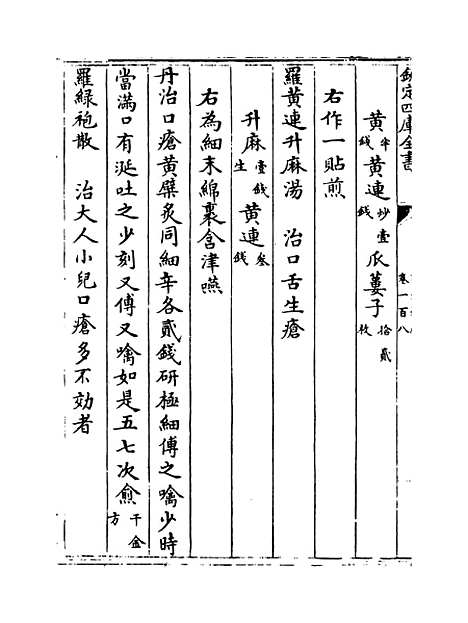 欽定四庫全書
卷一百八
黃半錢黃連炒壹錢瓜蔞子拾貳枚
右作一貼煎
羅黃連升麻湯　治口舌生瘡
升麻壹錢生黃連叁錢
右為細末綿裹含津嚥
丹治口瘡黃檗炙同細辛各貳錢研極細傅之噙少時
當滿口有涎吐之少刻又傅又噙如是五七次愈千金方
羅綠袍散　治大人小兒口瘡多不効者